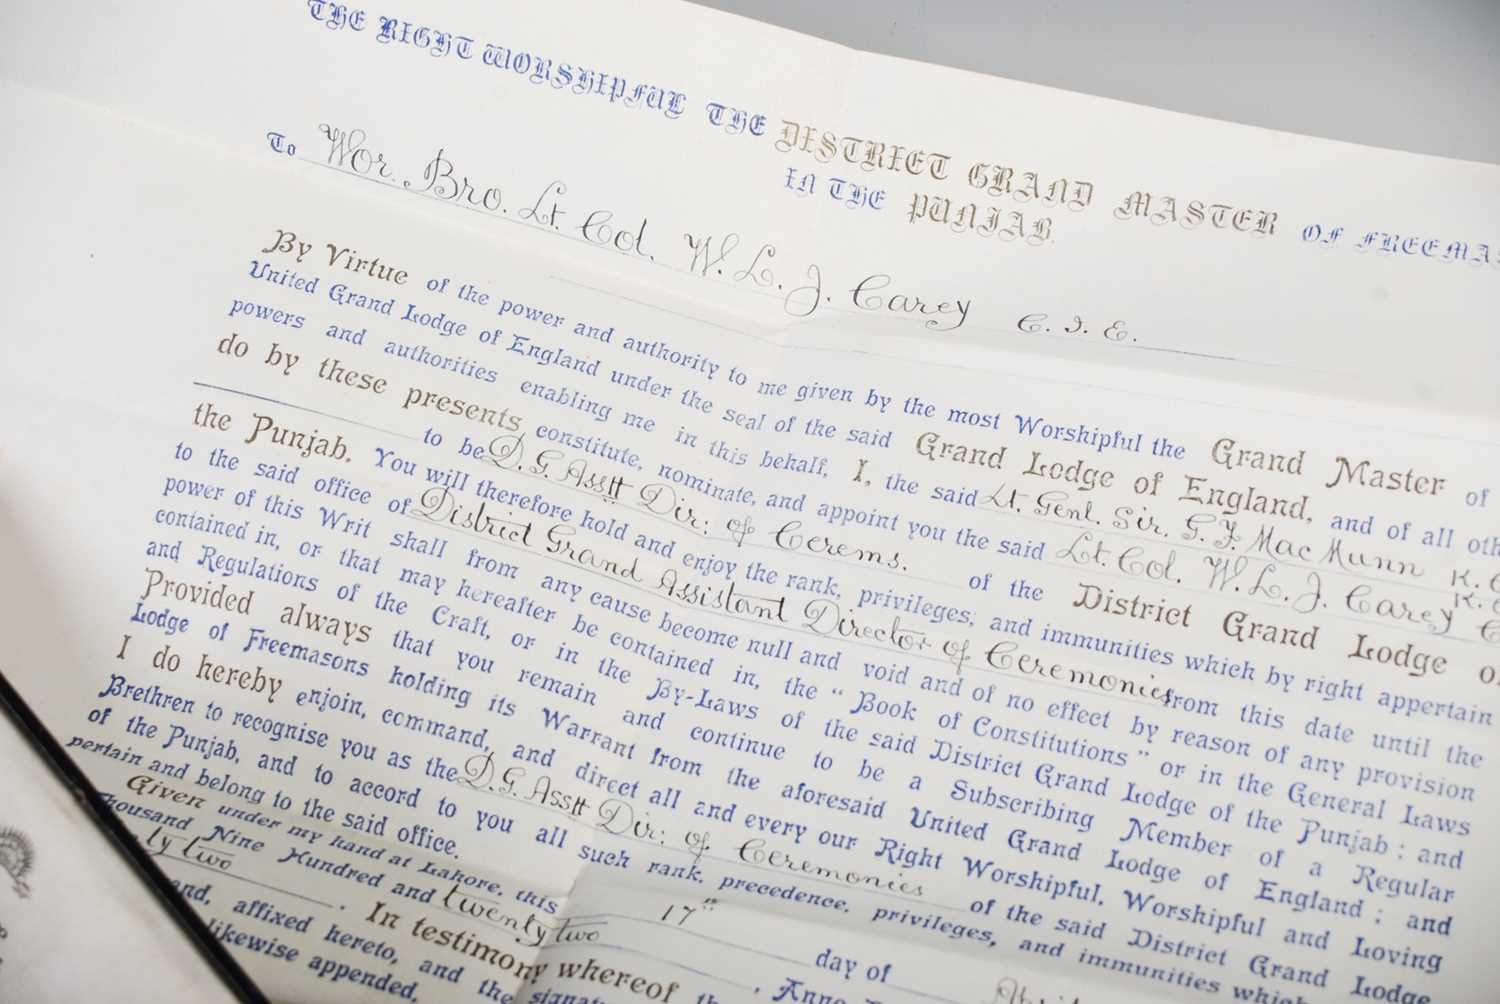 THE RIGHT WORSHIPFUL THE DISTRICT GRAND MASTER OF
IN THE PUNJAB.
To Wor. Bro. Lt. Col. W. L. J. Carey C. I. E.
By Virtue of the power and authority to me given by the most Worshipful the Grand Master of
United Grand Lodge of England under the seal of the said Grand Lodge of England, and of all
powers and authorities enabling me in this behalf, I, the said Lt. Genl. Sir. G. F. Mac Munn K.
do by these presents constitute, nominate, and appoint you the said Lt. Col. W. L. J. Carey
to be D. G. Asstt Dir: of Cerems. of the District Grand Lodge
the Punjab. You will therefore hold and enjoy the rank, privileges; and immunities which by right appertain
to the said office of District Grand Assistant Director of Ceremonies from this date until the
power of this Writ shall from any cause become null and void and of no effect by reason of any provision
contained in, or that may hereafter be contained in, the "Book of Constitutions" or in the General Laws
and Regulations of the Craft, or in the By-Laws of the said District Grand Lodge of the Punjab: and
Provided always that you remain and continue to be a Subscribing Member of a Regular
Lodge of Freemasons holding its Warrant from the aforesaid United Grand Lodge of England; and
I do hereby enjoin, command, and direct all and every our Right Worshipful, Worshipful and Loving
Brethren to recognise you as the D. G. Asstt Dir: of Ceremonies of the said District Grand Lodge
of the Punjab, and to accord to you all such rank, precedence, privileges, and immunities which
pertain and belong to the said office.
Given under my hand at Lahore, this 17th day of
Thousand Nine Hundred and twenty two, Anno
ty two. In testimony whereof
and, affixed hereto, and the
likewise appended.